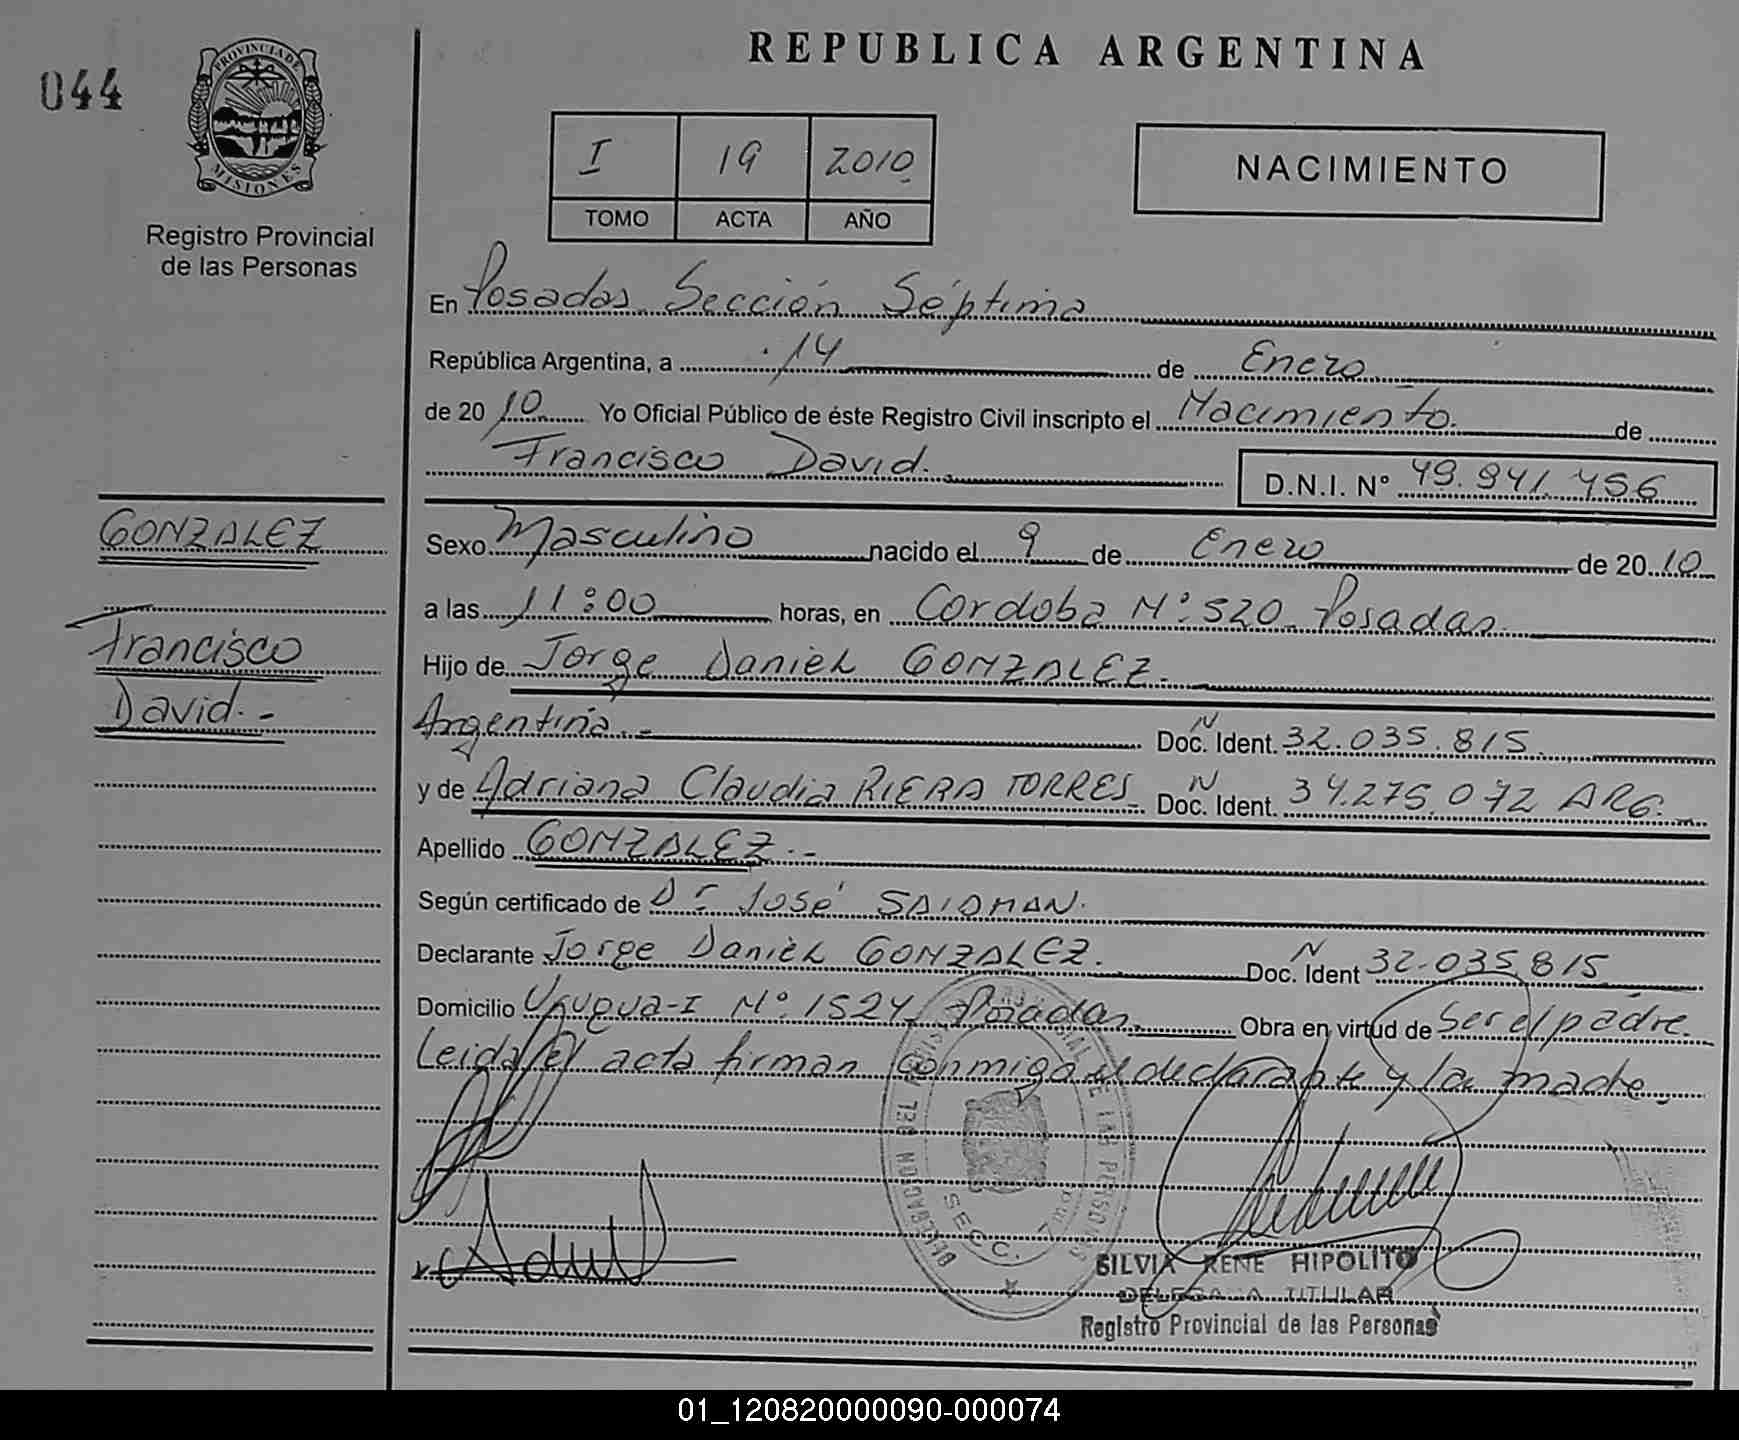 044
PROVINCIA DE
MISIONES
Registro Provincial
de las Personas
REPUBLICA ARGENTINA
I 19 2010
TOMO ACTA AÑO
NACIMIENTO
En Posadas Sección Séptima
República Argentina, a 14 de Enero
de 20 10 Yo Oficial Público de éste Registro Civil inscripto el Nacimiento de
Francisco David.
D.N.I. Nº 49.941.756
GONZALEZ
Francisco
David.-
Sexo Masculino nacido el 9 de Enero de 20 10
a las 11:00 horas, en Cordoba Nº:520. Posadas.
Hijo de Jorge Daniel GONZALEZ.-
Argentina.- Doc. Ident. N 32.035.815.
y de Adriana Claudia RIERA TORRES Doc. Ident. N 34.275.072 ARG.-
Apellido GONZALEZ.-
Según certificado de Dr José SAIDMAN.
Declarante Jorge Daniel GONZALEZ. Doc. Ident N 32.035.815
Domicilio Urugua-I Nº:1524, Posadas. Obra en virtud de Ser el padre.
Leida el acta firman conmigo el declarante y la madre.
SECC.
SILVIA RENE HIPOLITO
DELEGADA TITULAR
Registro Provincial de las Personas
01_120820000090-000074